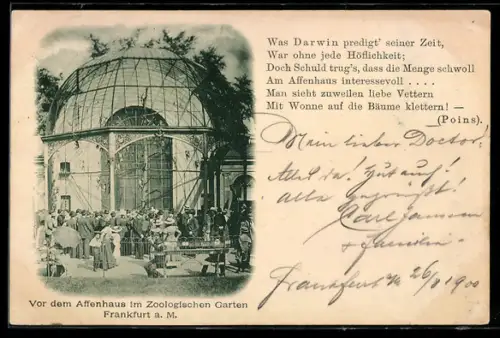 Was Darwin predigt' seiner Zeit,
War ohne jede Höflichkeit;
Doch Schuld trug's, dass die Menge schwoll
Am Affenhaus interessevoll . . . .
Man sieht zuweilen liebe Vettern
Mit Wonne auf die Bäume klettern! —
(Poins).
Mein lieber Doctor!
Alles da! Gut auf!
alle gegrüsst!
Carl
+ Familie
Frankfurt a/M 26/8 1900
Vor dem Affenhaus im Zoologischen Garten
Frankfurt a. M.